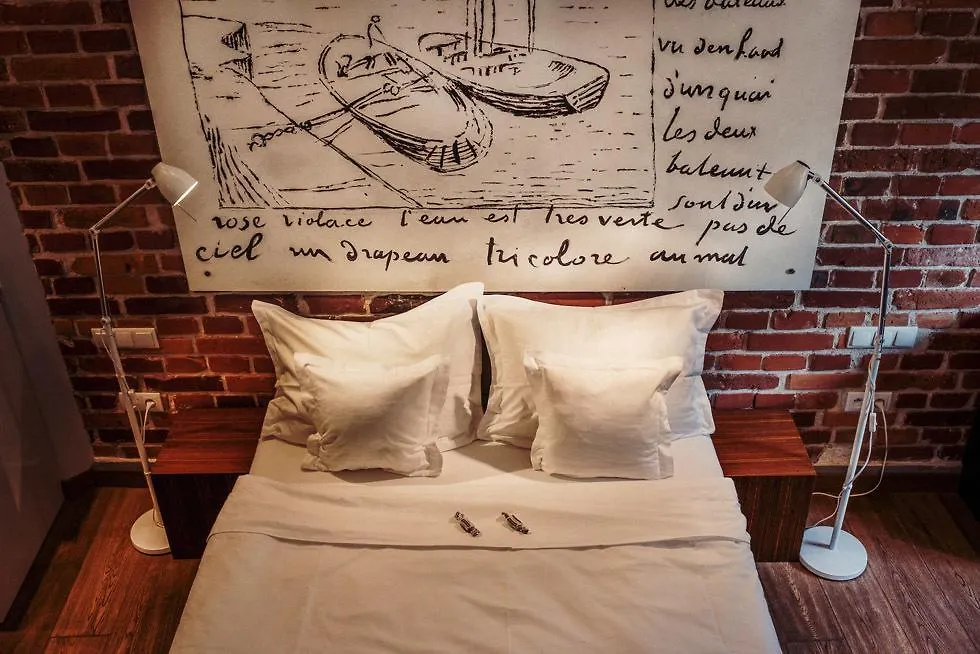 des bateaux
vu den haud
d'un quai
les deux
bateaut
sont d'un
rose violace l'eau est tres verte pas de
ciel un drapeau tricolore au mat